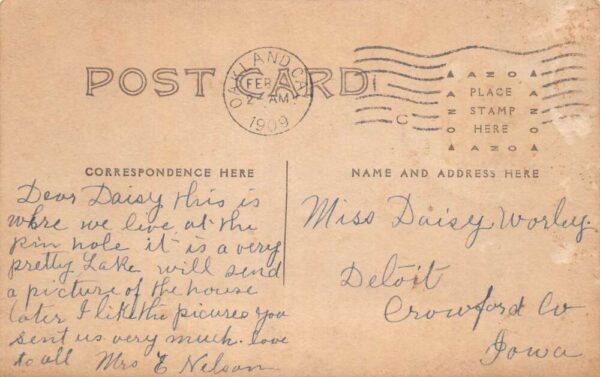 POST CARD
OAKLAND, CAL.
FEB
2- AM
1909
C
AZO
PLACE
STAMP
HERE
AZO
AZO
AZO
CORRESPONDENCE HERE
NAME AND ADDRESS HERE
Dear Daisy this is
where we live at the
pin hole it is a very
pretty Lake will send
a picture of the house
later I like the picures you
sent us very much. love
to all Mrs E Nelson
Miss Daisy Worley.
Deloit
Crowford Co
Iowa